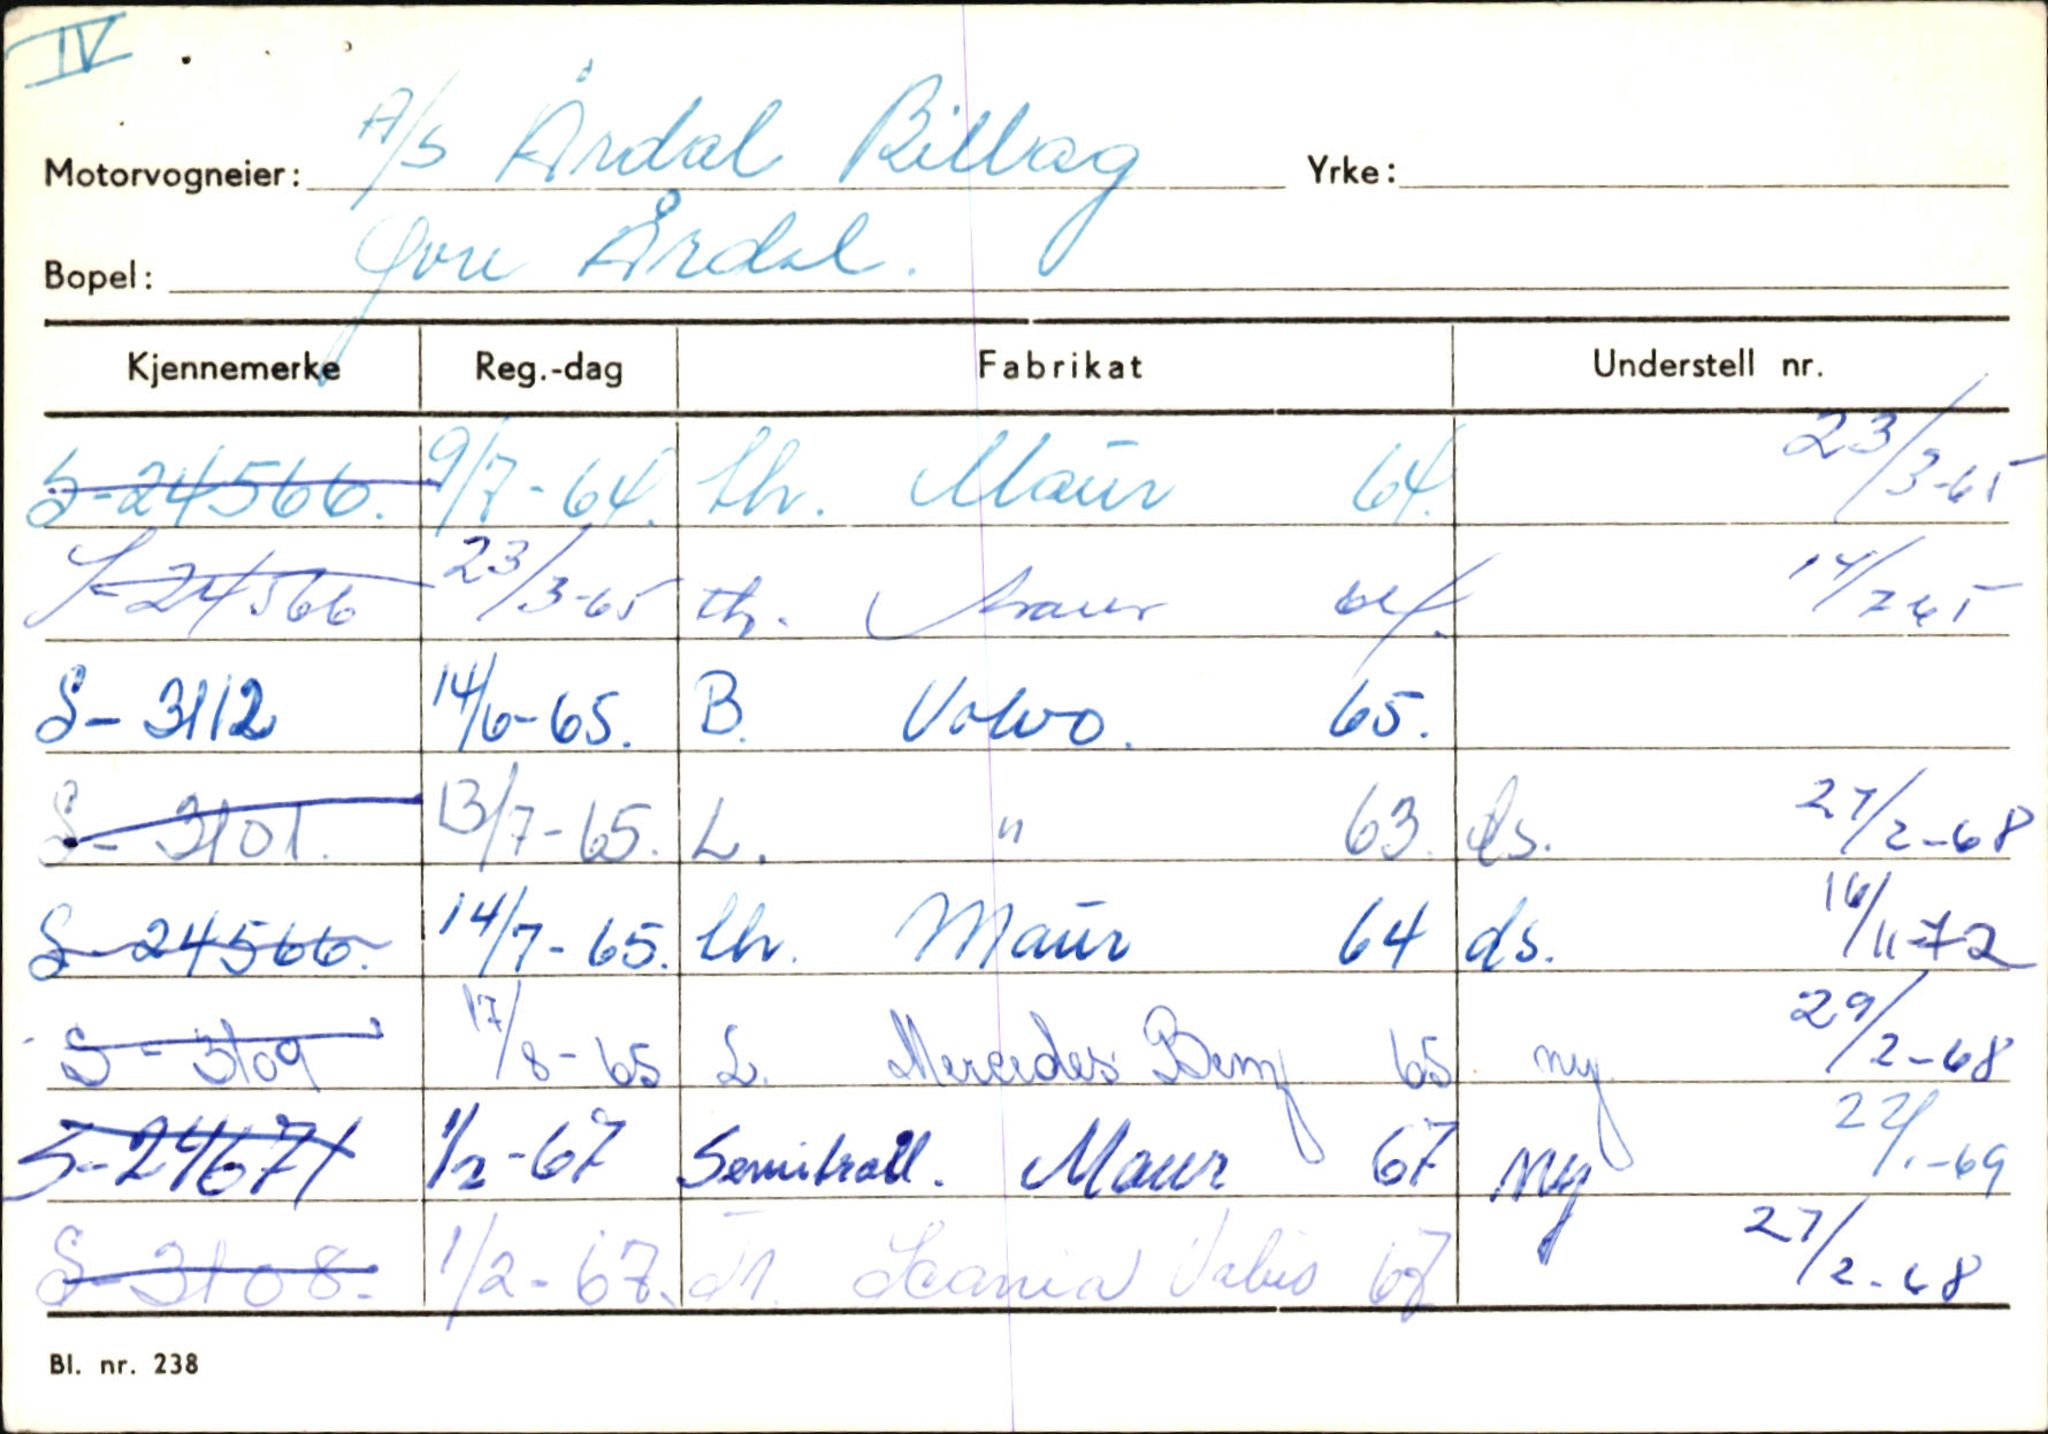 IV
Motorvogneier: A/S Årdal Billag Yrke:
Bopel: Øvre Årdal.
Kjennemerke Reg.-dag Fabrikat Understell nr.
S-24566. 9/7-64. th. Maur 64. 23/3-65
S-24566 23/3-65 th. Maur 64. 14/7 65
S-3112 14/6-65. B. Volvo. 65.
S-3101. 13/7-65. L. " 63. ds. 27/2-68
S-24566. 14/7-65. th. Maur 64 ds. 16/11-72
S-3109 17/8-65 L. Mercedes Benz 65 ny 29/2-68
S-24671 1/2-67 Semitrall. Maur 67 ny 22/1-69
S-3108. 1/2-67. Scania Vabis 67 27/2-68
Bl. nr. 238